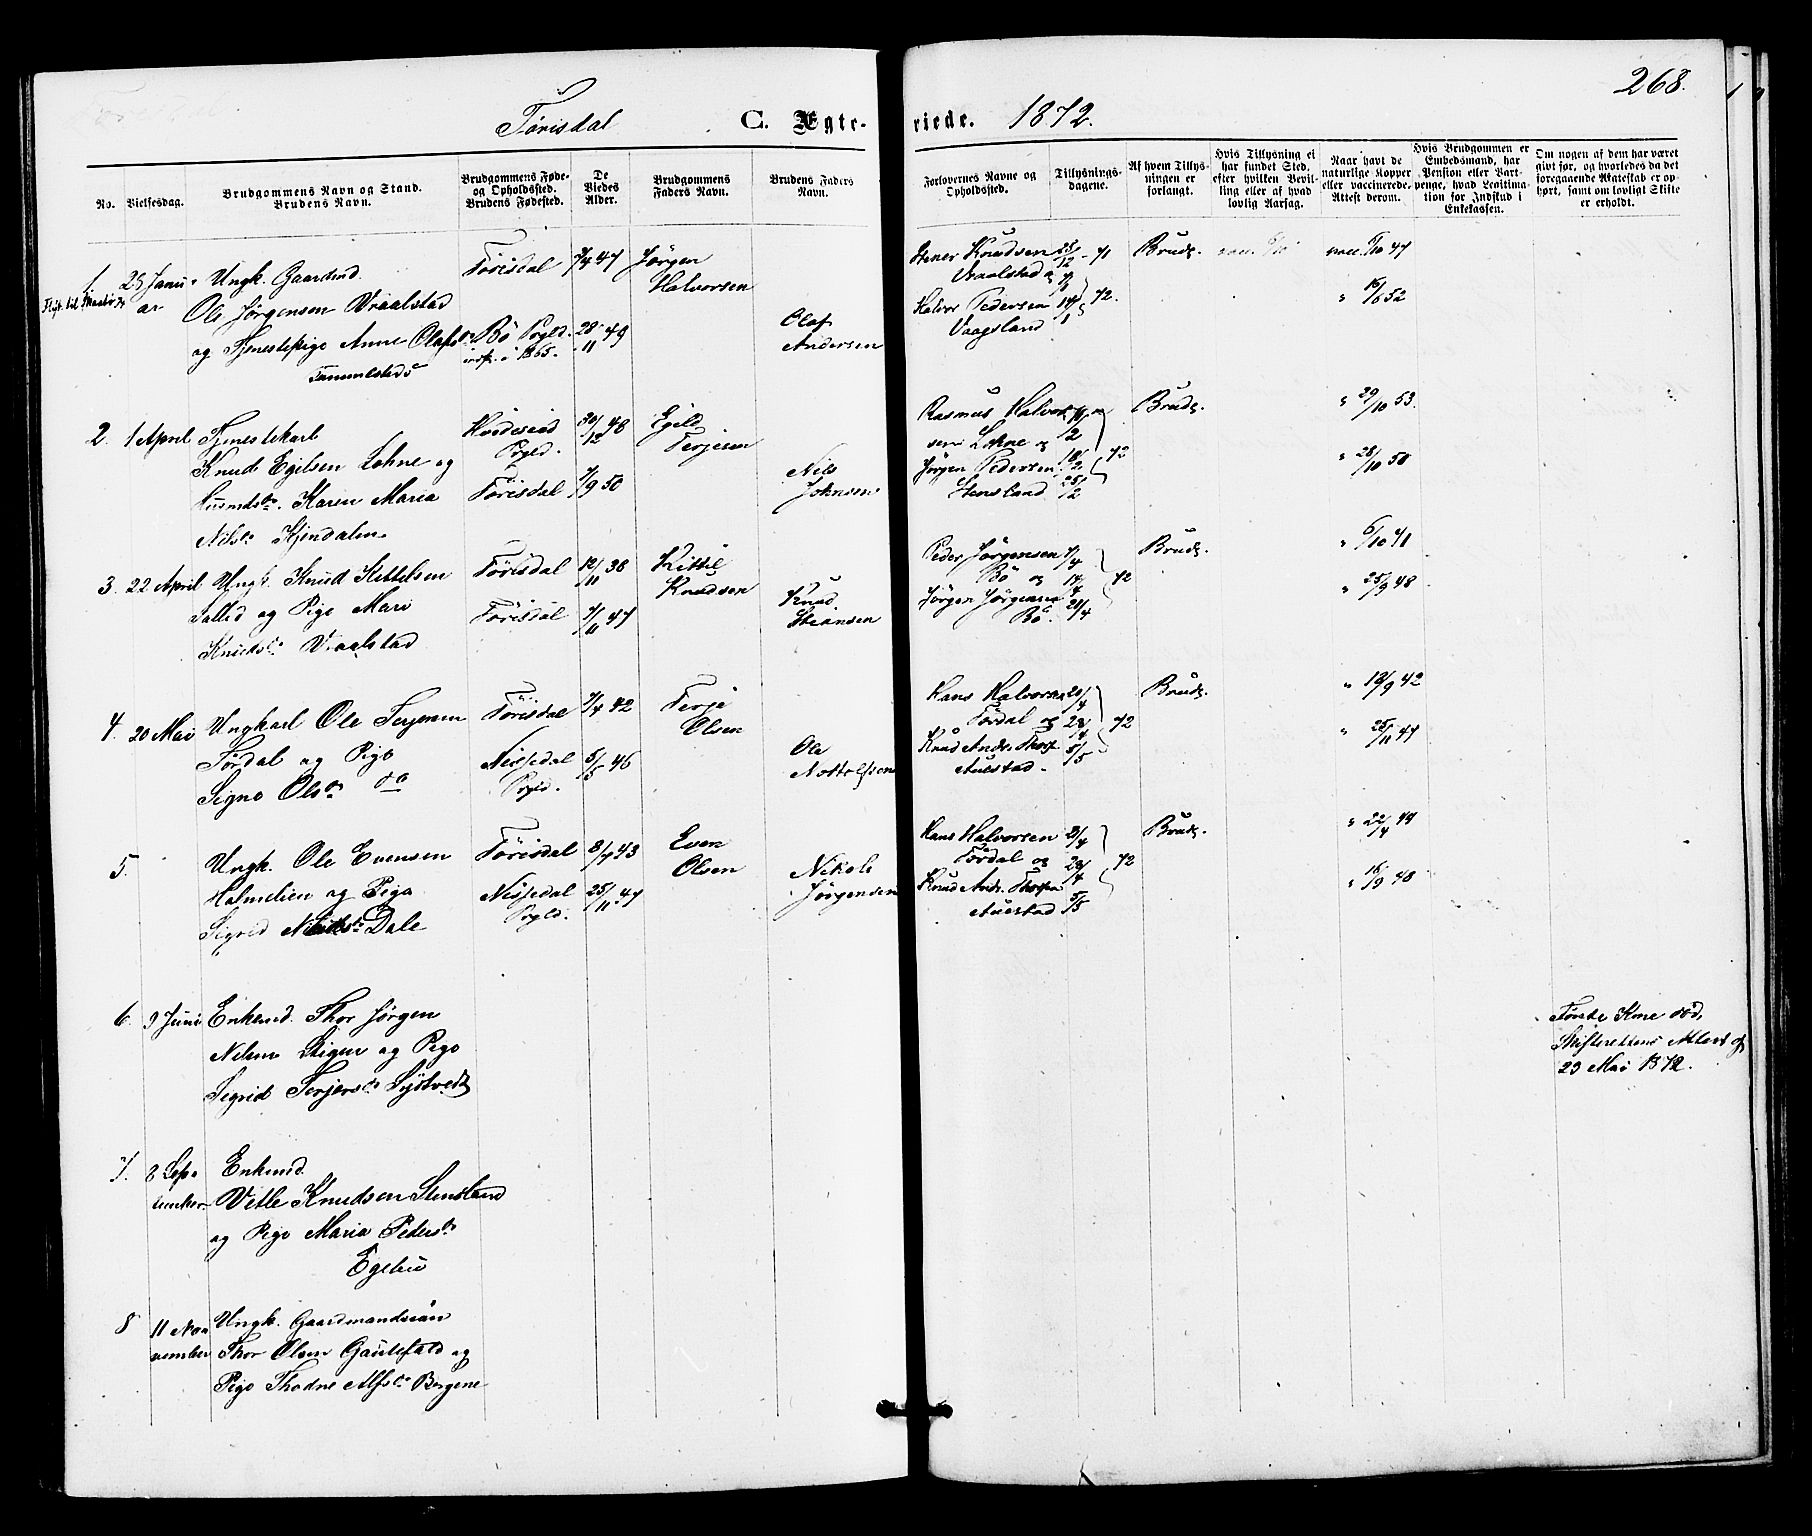 268.
Törisdal C. Egte- viede. 1872.
No.
Vielsesdag.
Brudgommens Navn og Stand.
Brudens Navn.
Brudgommens Føde-
og Opholdssted.
Brudens Fødested.
De
Viedes
Alder.
Brudgommens
Faders Navn.
Brudens Faders
Navn.
Forlovernes Navne og
Opholdssted.
Tillysnings-
dagene.
Af hvem Tillys-
ningen er
forlangt.
Hvis Tillysning ei
har fundet Sted,
efter hvilken Bevil-
ling eller af hvad
lovlig Aarsag.
Naar havt de
naturlige Kopper
eller vaccinerede.
Attest derom.
Hvis Brudgommen er
Embedsmand, har
Pension eller Vart-
penge, hvad Legitima-
tion for Indskud i
Enkekassen.
Om nogen af dem har været
givt før, og hvorledes da det
foregaaende Ægteskab er op-
hørt, samt om lovligt Skifte
er erholdt.
1. 25 Janu-
ar
Ungk. Gaardmd.
Ole Jörgensen Vraalstad
og Tjenestepige Anne Olafsdr.
Törisdal
Bö Prgld.
1865.
7/4 47
28/11 49
Jörgen
Halvorsen
Olaf
Andersen
Stener Knudsen
Vraalstad og
Halvor Pedersen
Vaagsland
25/12 - 71
7/1
14/1
72.
Brudg.
vacc. 7/10 47
" 15/6 52
2. 1 April
Tjenestekarl
Knud Egilsen Lohne og
Husmdsdr. Karen Maria
Nilsdr. Kjendalen
Hvideseid
Prgld.
Törisdal
30/12 48
7/9 50
Egild
Terjesen
Nils
Johnsen
Rasmus Halvor-
sen Lohne og
Jörgen Pedersen
Stensland
11/2
18/2
25/2
72
Brudg.
" 29/10 53.
" 28/10 50
3. 22 April
Ungk. Knud Kittelsen
og Pige Mari
Knudsdr. Vraalstad
Törisdal
Törisdal
12/11 38
7/11 47
Kittil
Knudsen
Knud
Steansen
Peder Jörgensen
Bö og
Jörgen Jörgensen
Bö.
7/4
14/4
21/4
72
Brudg.
" 6/10 41
" 25/9 48
4. 20 Mai
Ungkarl Ole Terjesen
Tördal og Pige
Signe Olsdr. do
Törisdal
Nissedal
Prgld.
7/4 42
5/5 46
Terje
Olsen
Ole
Nottolfsen
Hans Halvorsen
Tördal og
Knud Andr. Thorp
Aulstad.
21/4
28/4
5/5
72
Brudg.
" 18/9 42
" 25/11 47
5.
Ungk. Ole Evensen
Holmelien og Pige
Sigrid Nikolsdr. Dale
Törisdal
Nissedal
Prgld.
8/7 43
25/11 47
Even
Olsen
Nikols
Jörgensen
Hans Halvorsen
Tördal og
Knud Andr. Thorp
Aulstad
21/4
28/4
5/5
72
Brudg.
" 22/4 44
" 15/9 48
6. 9 Juni
Enkemd. Thor Jörgen
Nilsen Stigen og Pige
Sigrid Terjersdr.
Første Kone död,
Skifterettens Attest af
23 Mai 1872.
7. 8 Sep-
tember
Enkemd.
Vetle Knudsen Stensland
og Pige Maria Pedersdr.
Egelie
8 11 No-
vember
Ungk. Gaardmandssön
Thor Olsen Gautefald og
Pige Thodne Alfsdr. Bergene